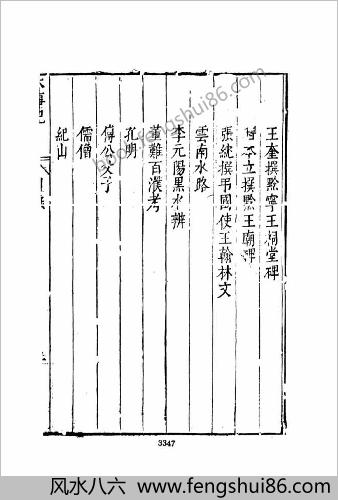 王奎撰黔寧王祠堂碑
立撰黔王廟碑
張紞撰弔國使王翰林文
雲南水路
李元陽黑水辨
董難百濮考
孔明
傅公父子
儒僧
紀山
3347
book.fengshui86.com
风水八六 www.fengshui86.com